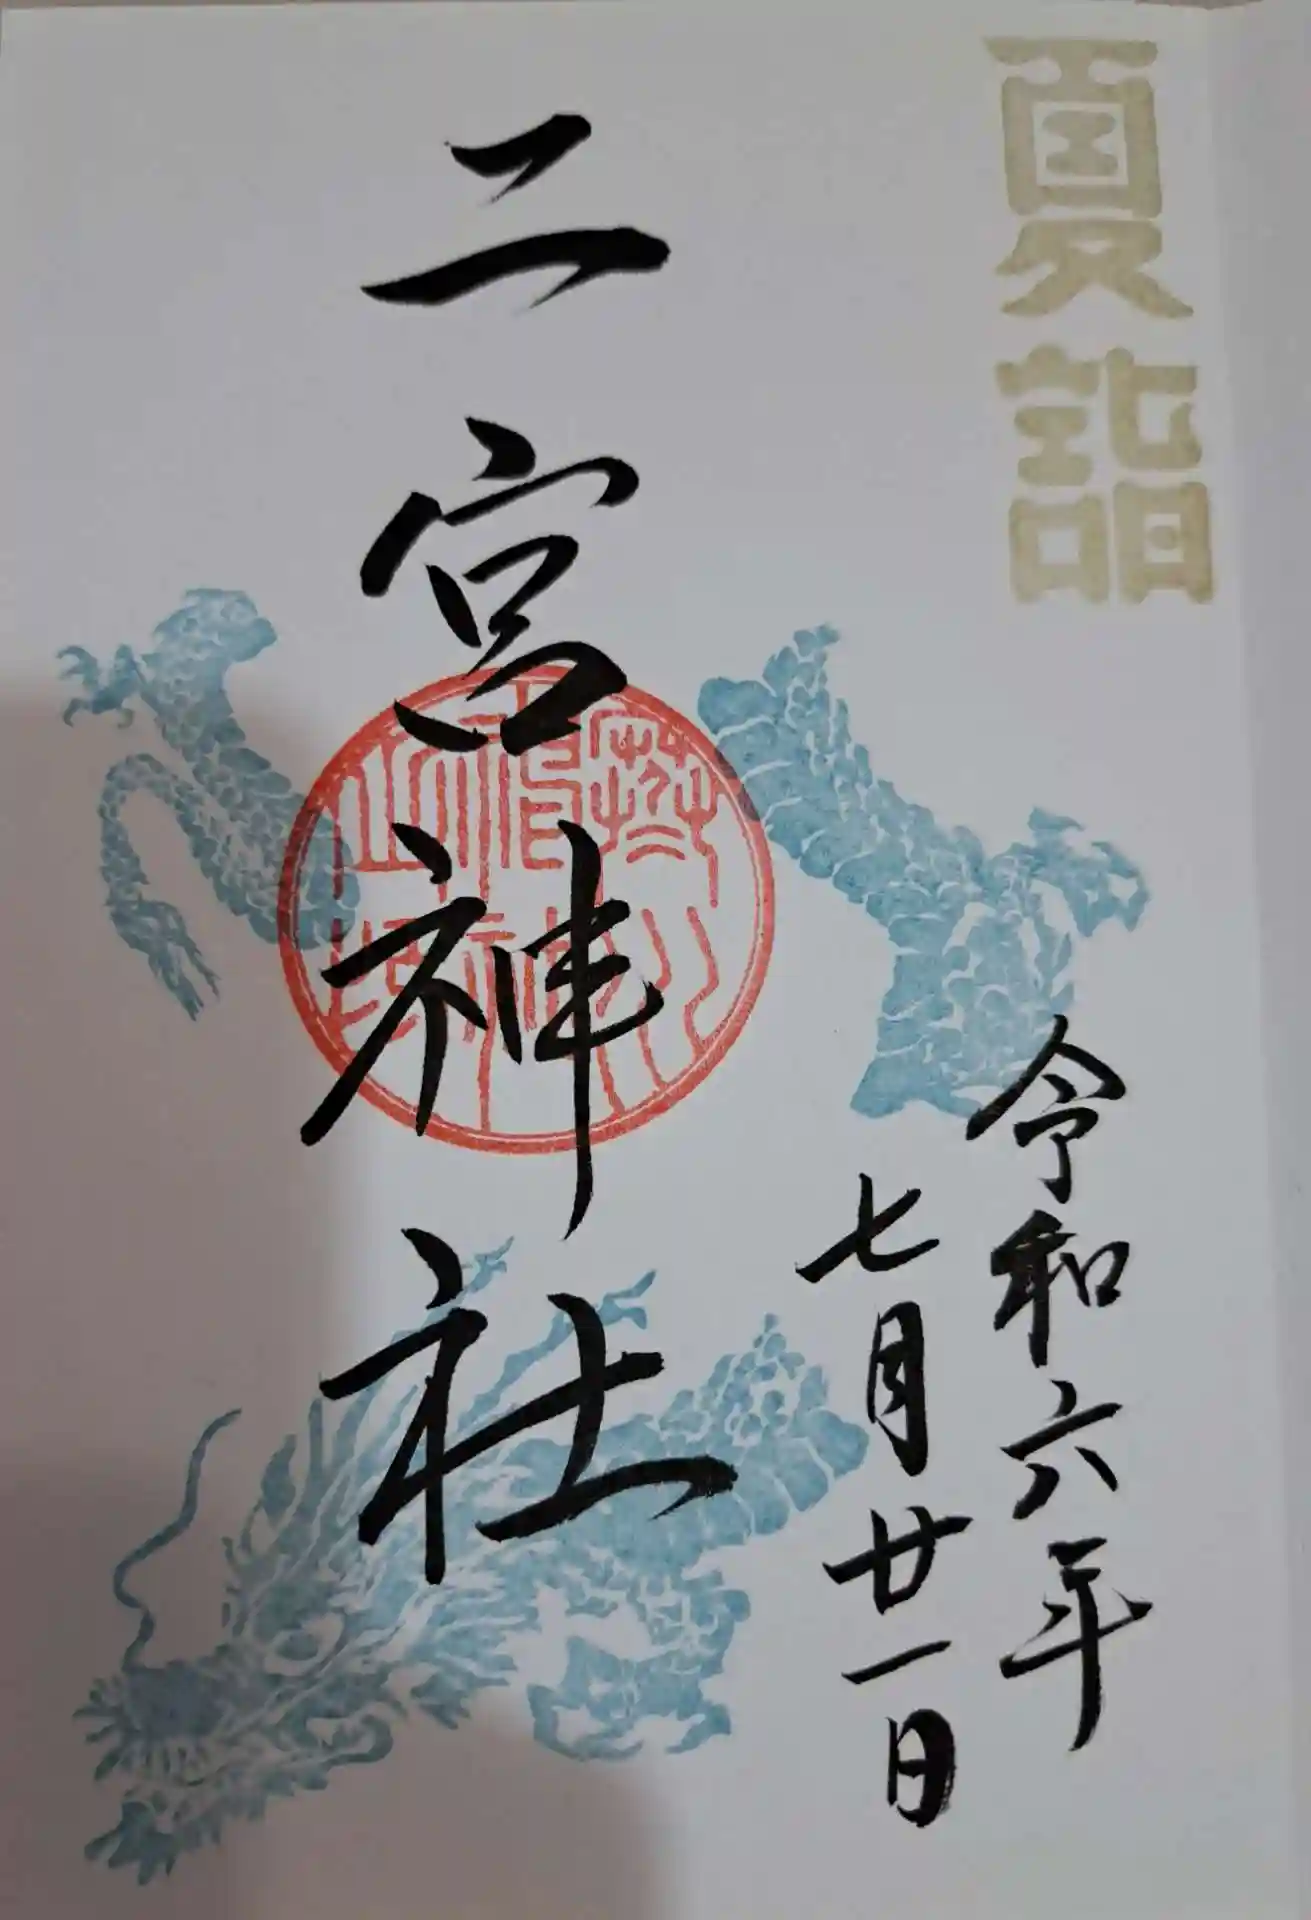 夏詣
令和六年
七月廿一日
二宮神社